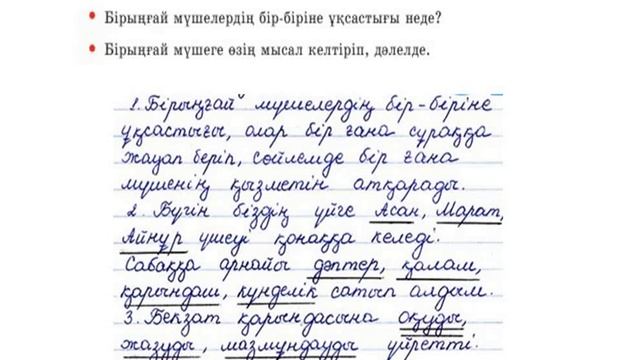 • Бірыңғай мүшелердің бір-біріне ұқсастығы неде?
• Бірыңғай мүшеге өзің мысал келтіріп, дәлелде.
1. Бірыңғай мүшелердің бір-біріне
ұқсастығы, олар бір ғана сұраққа
жауап беріп, сөйлемде бір ғана
мүшенің қызметін атқарады.
2. Бүгін біздің үйге Асан, Марат,
Айнұр үшеуі қонаққа келеді.
Сабаққа арнайы дәптер, қалам,
қарындаш, күнделік сатып алдым.
3. Бекзат қарындасына оқуды,
жазуды, мазмұндауды үйретті.